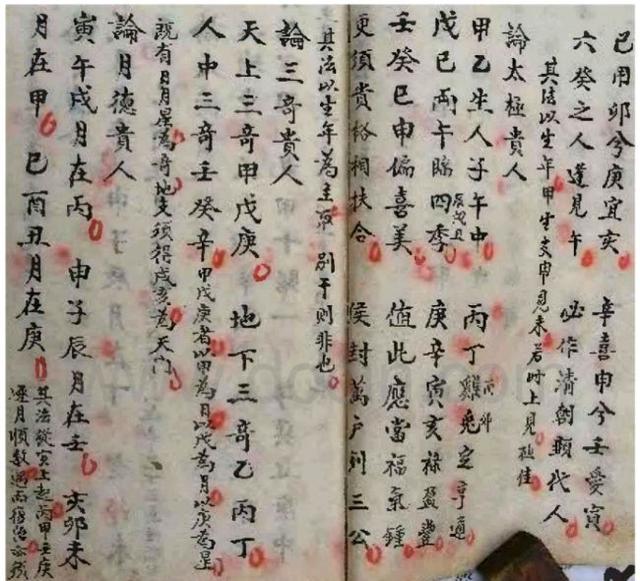 己用卯兮庚宜亥 辛喜申兮壬愛寅
六癸之人逢見午 必作清朝顯代人
其法以生年甲生支申見未若時上見極佳
論太極貴人
甲乙生人子午中 丙丁雞兔定亨通 酉卯
戊己兩午臨四季 辰戌丑 庚辛寅亥祿盈豐
壬癸巳申偏喜美 值此應當福氣鍾
更須貴格相扶合 侯封萬户列三公
其法以生年為主 別干則非也
論三奇貴人
天上三奇甲戊庚 地下三奇乙丙丁
人中三奇壬癸辛 甲戊庚者以甲為日以戊為月以庚為星
既有日月星為奇地支須得戌亥為天門
論月德貴人
寅午戌月在丙 申子辰月在壬 亥卯未
月在甲 巳酉丑月在庚 其法從寅上起丙甲壬庚
逐月順數過而復